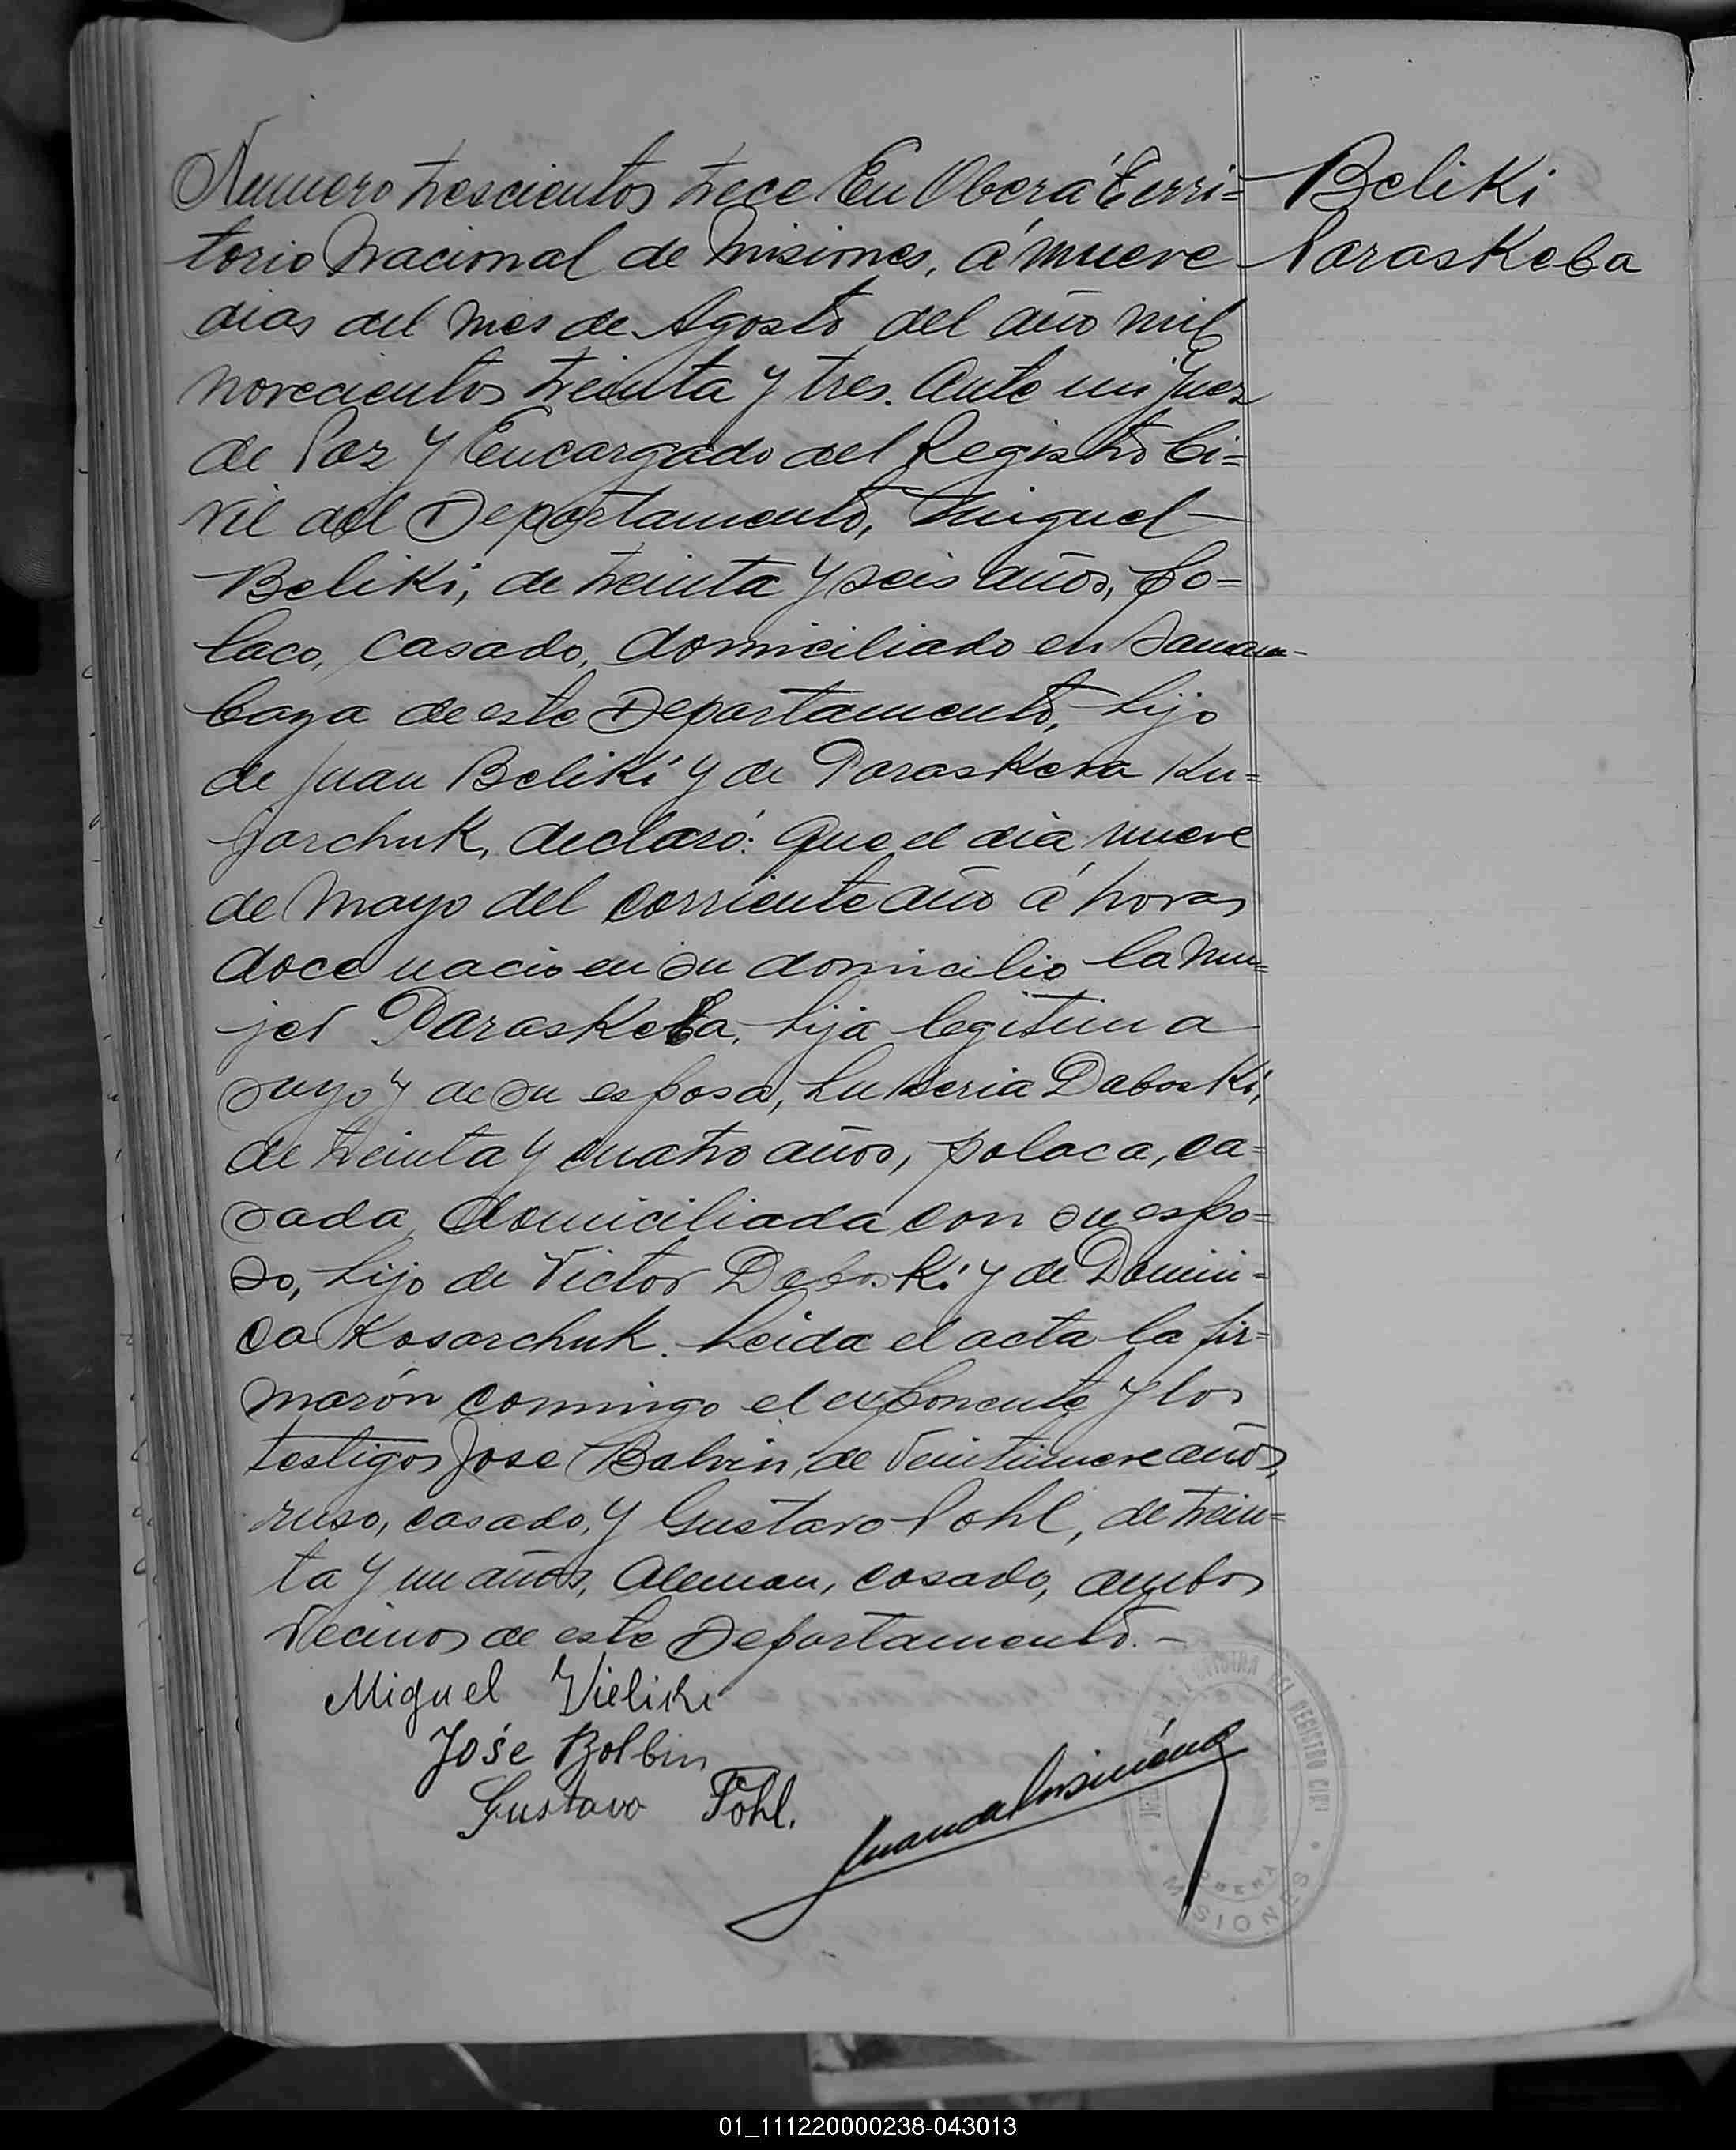 Numero trescientos trece En Oberá Terri=
torio Nacional de Misiones, á nueve
dias del mes de Agosto del año mil
novecientos treinta y tres. Ante mi Juez
de Paz y Encargado del Registro Ci=
vil del Departamento, Miguel
Beliki, de treinta y seis años, po=
laco, casado, domiciliado en Samam-
baya de este Departamento, hijo
de Juan Beliki y de Paraskeva Ku=
jarchuk, declaró: Que el dia nueve
de Mayo del corriente año á horas
doce nacio en su domicilio la mu=
jer Paraskeba, hija legitima
suya y de su esposa, Lukeria Daboski,
de treinta y cuatro años, polaca, ca=
sada, domiciliada con su espo=
so, hijo de Victor Daboski y de Domin=
ca Kosarchuk. Leida el acta la fir=
marón conmigo el exponente y los
testigos Jose Balvin, de veintinueve años,
ruso, casado, y Gustavo Pohl, de trein=
ta y un años, Aleman, casado, ambos
vecinos de este Departamento.-
Beliki
Paraskeba
Miguel Vieliki
José Bolbin
Gustavo Pohl.
DEL REGISTRO CIVIL
OBERA
MISIONES
01_111220000238-043013